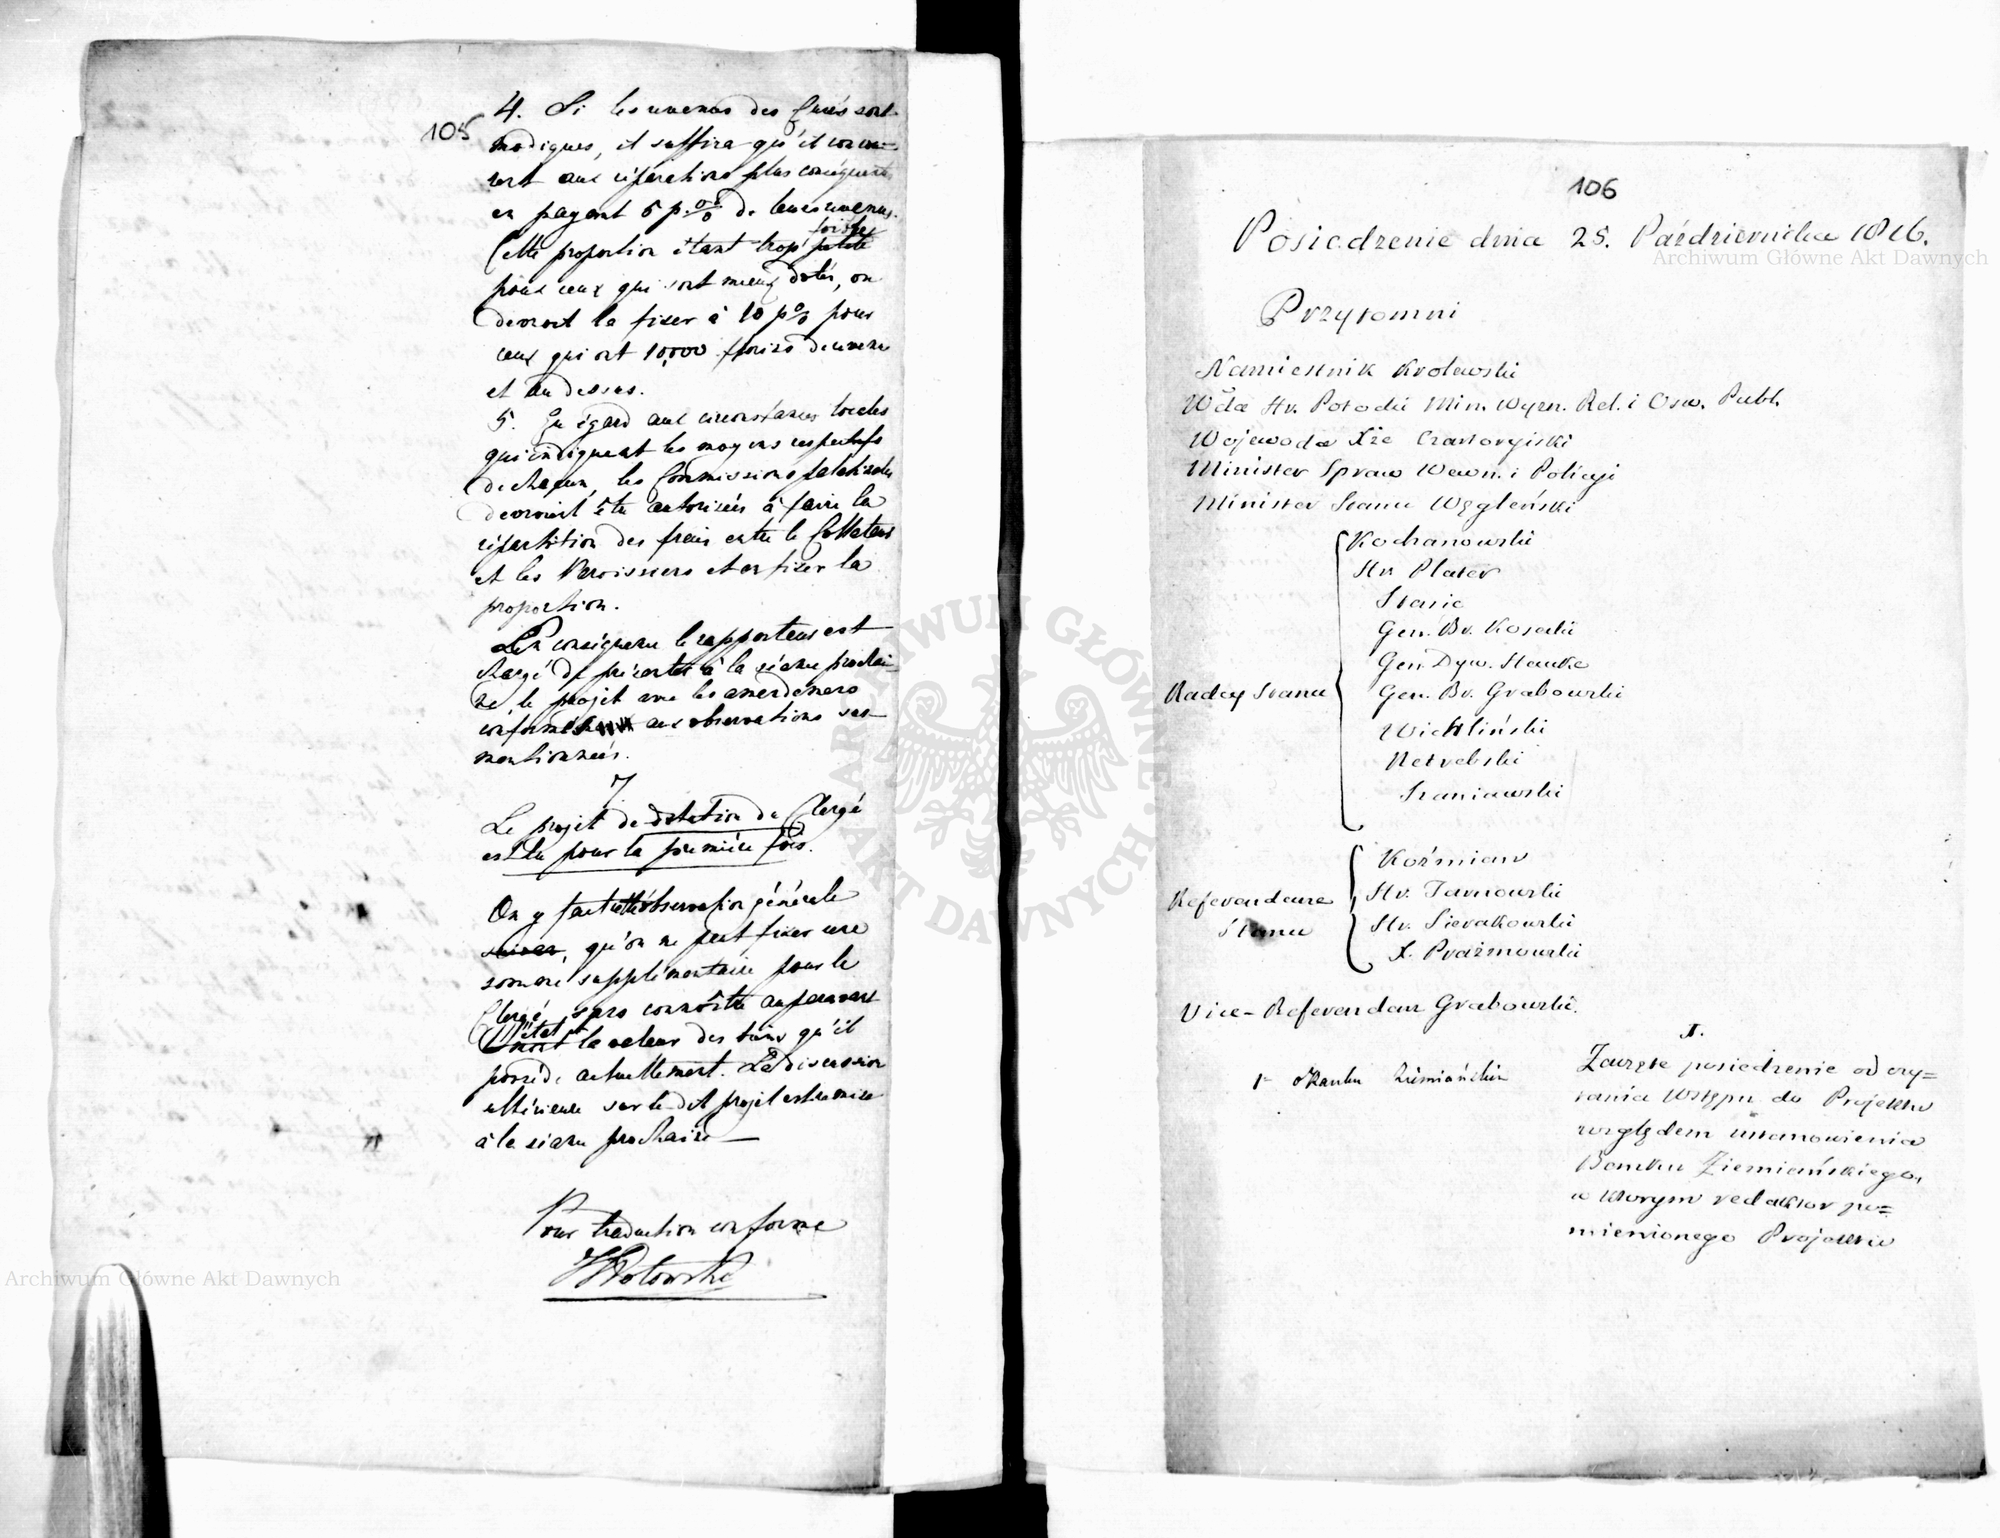 105
4. Si les revenus des Curés sont
modiques, il suffira qu'il concou-
rent aux réparations plus conséquentes
en payant 5 p. % de leurs revenus.
Cette proportion étant trop foible petite
pour ceux qui sont mieux dotés, on
devroit la fixer à 10 p% pour
ceux qui ont 10,000 florins de revenu
et au dessus.
5. Eu égard aux circonstances locales
qui indiquent les moyens respectifs
de chacun, les Commissions palatinales
devroient être autorisées à faire la
répartition des frais entre le Collateur
et les Paroissiens et en fixer la
proportion.
En conséquence le rapporteur est
chargé de présenter à la séance prochai-
ne le projet avec les amendemens
conformes aux observations sus-
mentionnées.
7
Le projet de dotation du Clergé
est lu pour la première fois.
On y fait cette observation générale
, qu'on ne peut fixer une
somme supplémentaire pour le
Clergé, sans connoître auparavant
l'état et la valeur des biens qu'il
possède actuellement. La discussion
ultérieure sur le dit projet est remise
à la séance prochaine —
Pour traduction conforme
106
Posiedzenie dnia 25. Października 1816.
Przytomni
Namiestnik Krolewski
Wda Hr. Potocki Min. Wyzn. Rel. i Osw. Publ.
Wojewoda Xże Czartoryiski
Minister Spraw Wewn. i Policyi
Minister Stanu Węgleński
Radcy Stanu
Kochanowski
Hr. Plater
Stasic
Gen. Br. Kosecki
Gen. Dyw. Hauke
Gen. Br. Grabowski
Wichliński
Netrebski
Szaniawski
Referendarze
Stanu
Koźmian
Hr. Tarnowski
Hr. Sierakowski
X. Prażmowski
Vice-Referendarz Grabowski.
I.
1° o Banku Ziemiańskim
Zaczęte posiedzenie od czy=
tania Wstępu do Projektu
względem ustanowienia
Banku Ziemiańskiego,
w ktorym redaktor po=
mienionego Projektu
Archiwum Główne Akt Dawnych
Archiwum Główne Akt Dawnych
ARCHIWUM GŁÓWNE AKT DAWNYCH